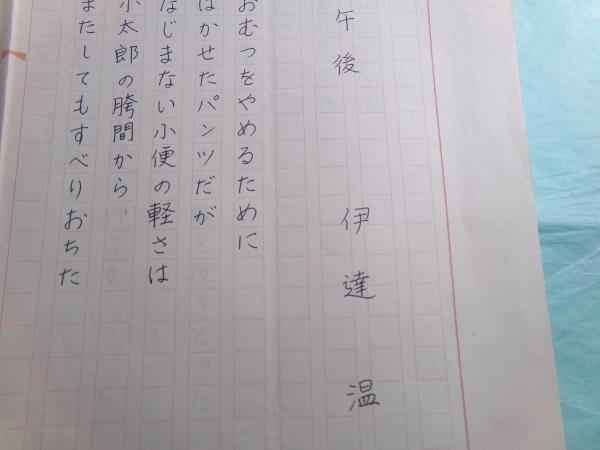 午後 伊達温
おむつをやめるために
はかせたパンツだが
なじまない小便の軽さは
小太郎の胯間から
またしてもすべりおちた